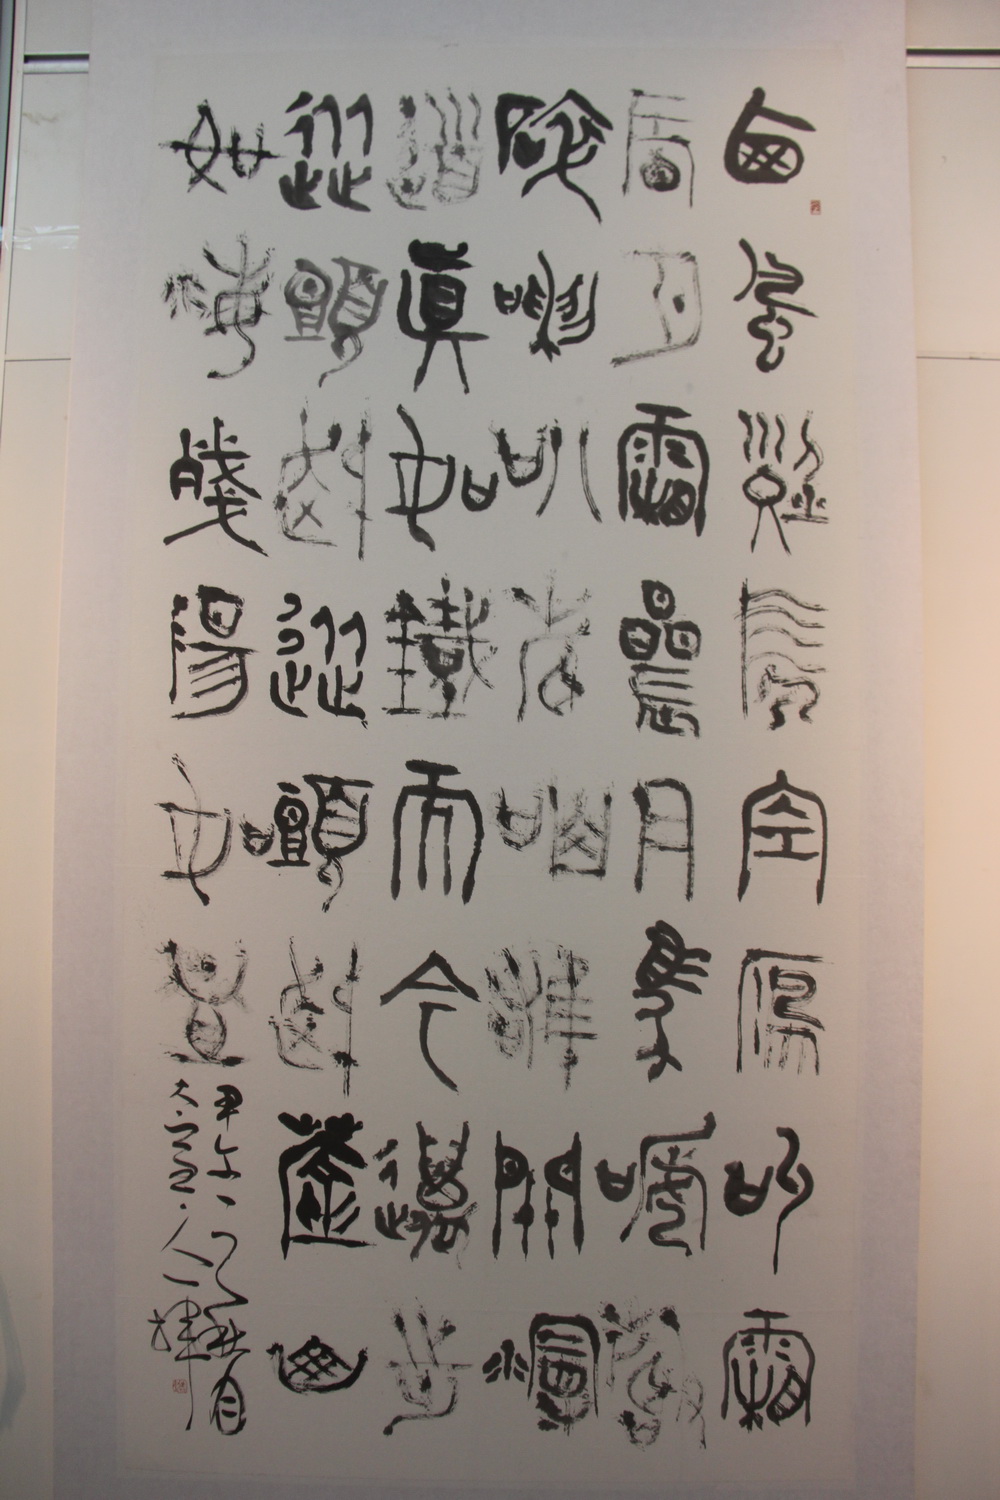 西風烈長空雁叫霜
晨月霜晨月馬蹄聲
碎喇叭聲咽雄關漫
道真如鐵而今邁步
從頭越從頭越蒼山
如海殘陽如血
甲午之秋月